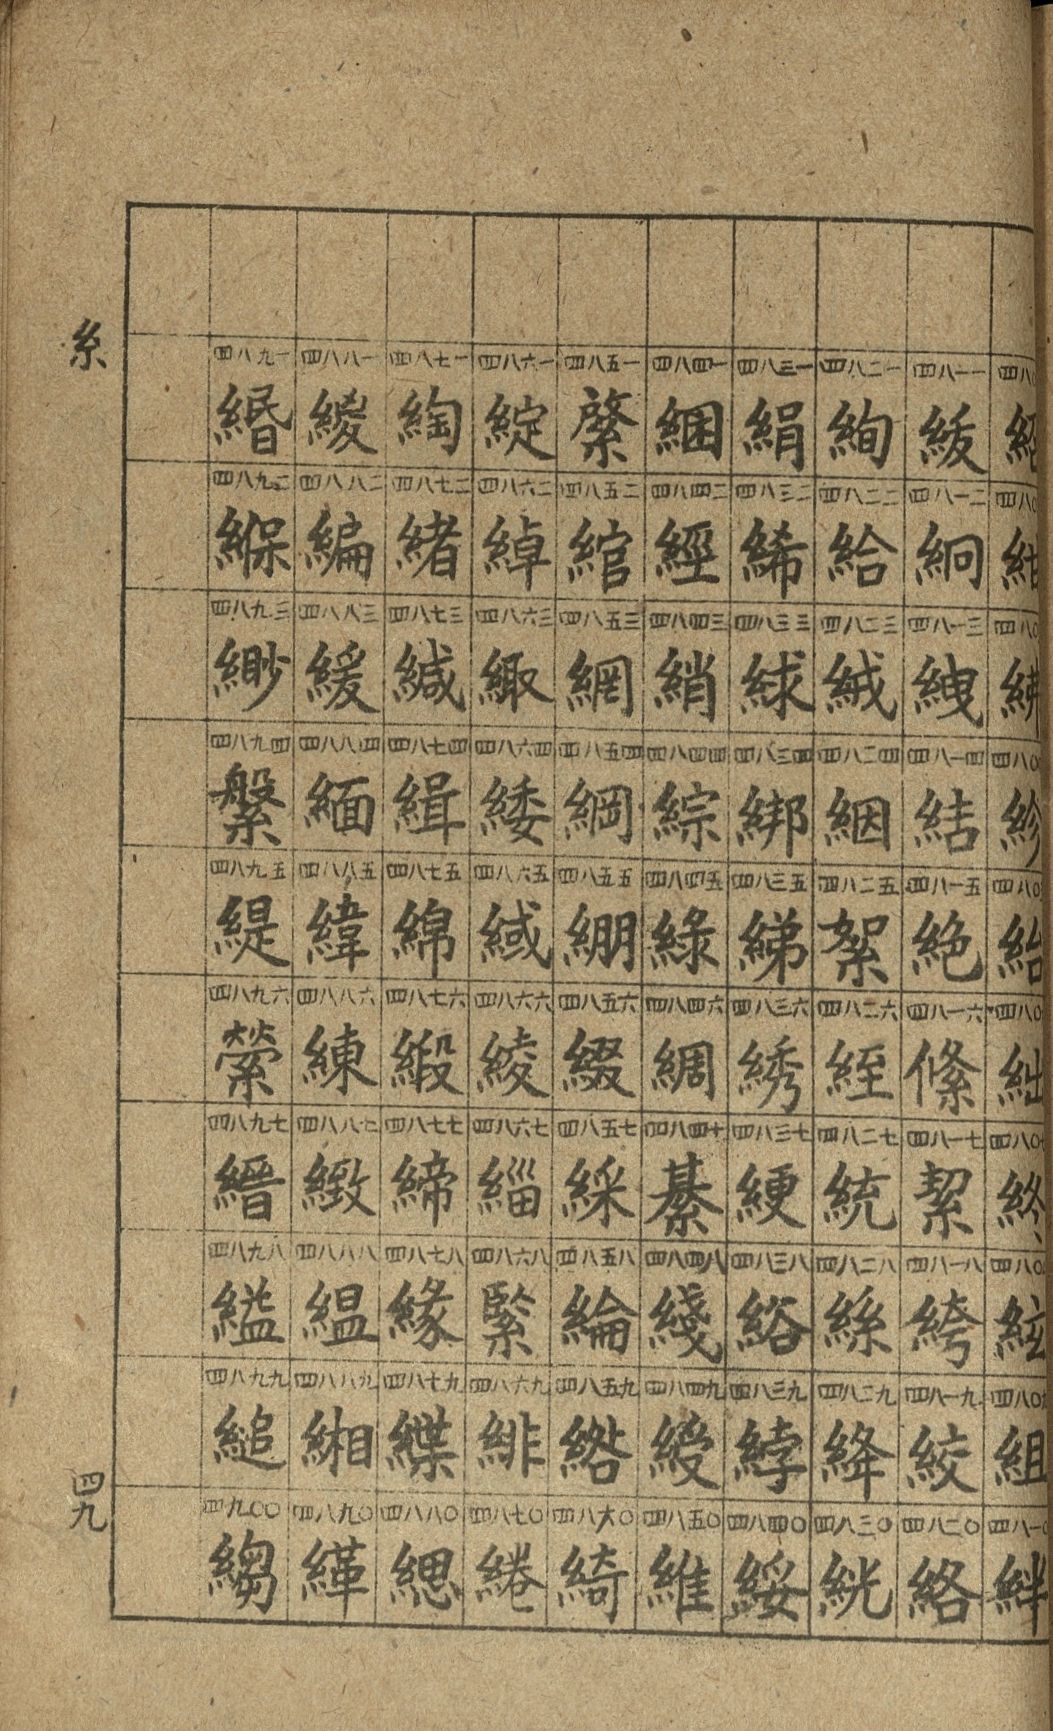 紹 紺 紼 紾 紿 絀 終 絃 組 絆
四八一一 紱 四八一二 絅 四八一三 絏 四八一四 結 四八一五 絶 四八一六 絛 四八一七 絜 四八一八 絝 四八一九 絞 四八二〇 絡
四八二一 絢 四八二二 給 四八二三 絨 四八二四 絪 四八二五 絮 四八二六 絰 四八二七 統 四八二八 絲 四八二九 絳 四八三〇 絖
四八三一 絹 四八三二 絺 四八三三 絿 四八三四 綁 四八三五 綈 四八三六 綉 四八三七 綆 四八三八 綌 四八三九 綍 四八四〇 綏
四八四一 綑 四八四二 經 四八四三 綃 四八四四 綜 四八四五 綠 四八四六 綢 四八四七 綦 四八四八 綫 四八四九 綬 四八五〇 維
四八五一 綮 四八五二 綰 四八五三 網 四八五四 綱 四八五五 綳 四八五六 綴 四八五七 綵 四八五八 綸 四八五九 綹 四八六〇 綺
四八六一 綻 四八六二 綽 四八六三 緅 四八六四 緌 四八六五 緎 四八六六 綾 四八六七 緇 四八六八 緊 四八六九 緋 四八七〇 綣
四八七一 綯 四八七二 緒 四八七三 緘 四八七四 緝 四八七五 綿 四八七六 緞 四八七七 締 四八七八 緣 四八七九 緤 四八八〇 緦
四八八一 緵 四八八二 編 四八八三 緩 四八八四 緬 四八八五 緯 四八八六 練 四八八七 緻 四八八八 緼 四八八九 緗 四八九〇 緙
四八九一 緡 四八九二 緥 四八九三 緲 四八九四 縏 四八九五 緹 四八九六 縈 四八九七 縉 四八九八 縊 四八九九 縋 四九〇〇 縐
糸
四九